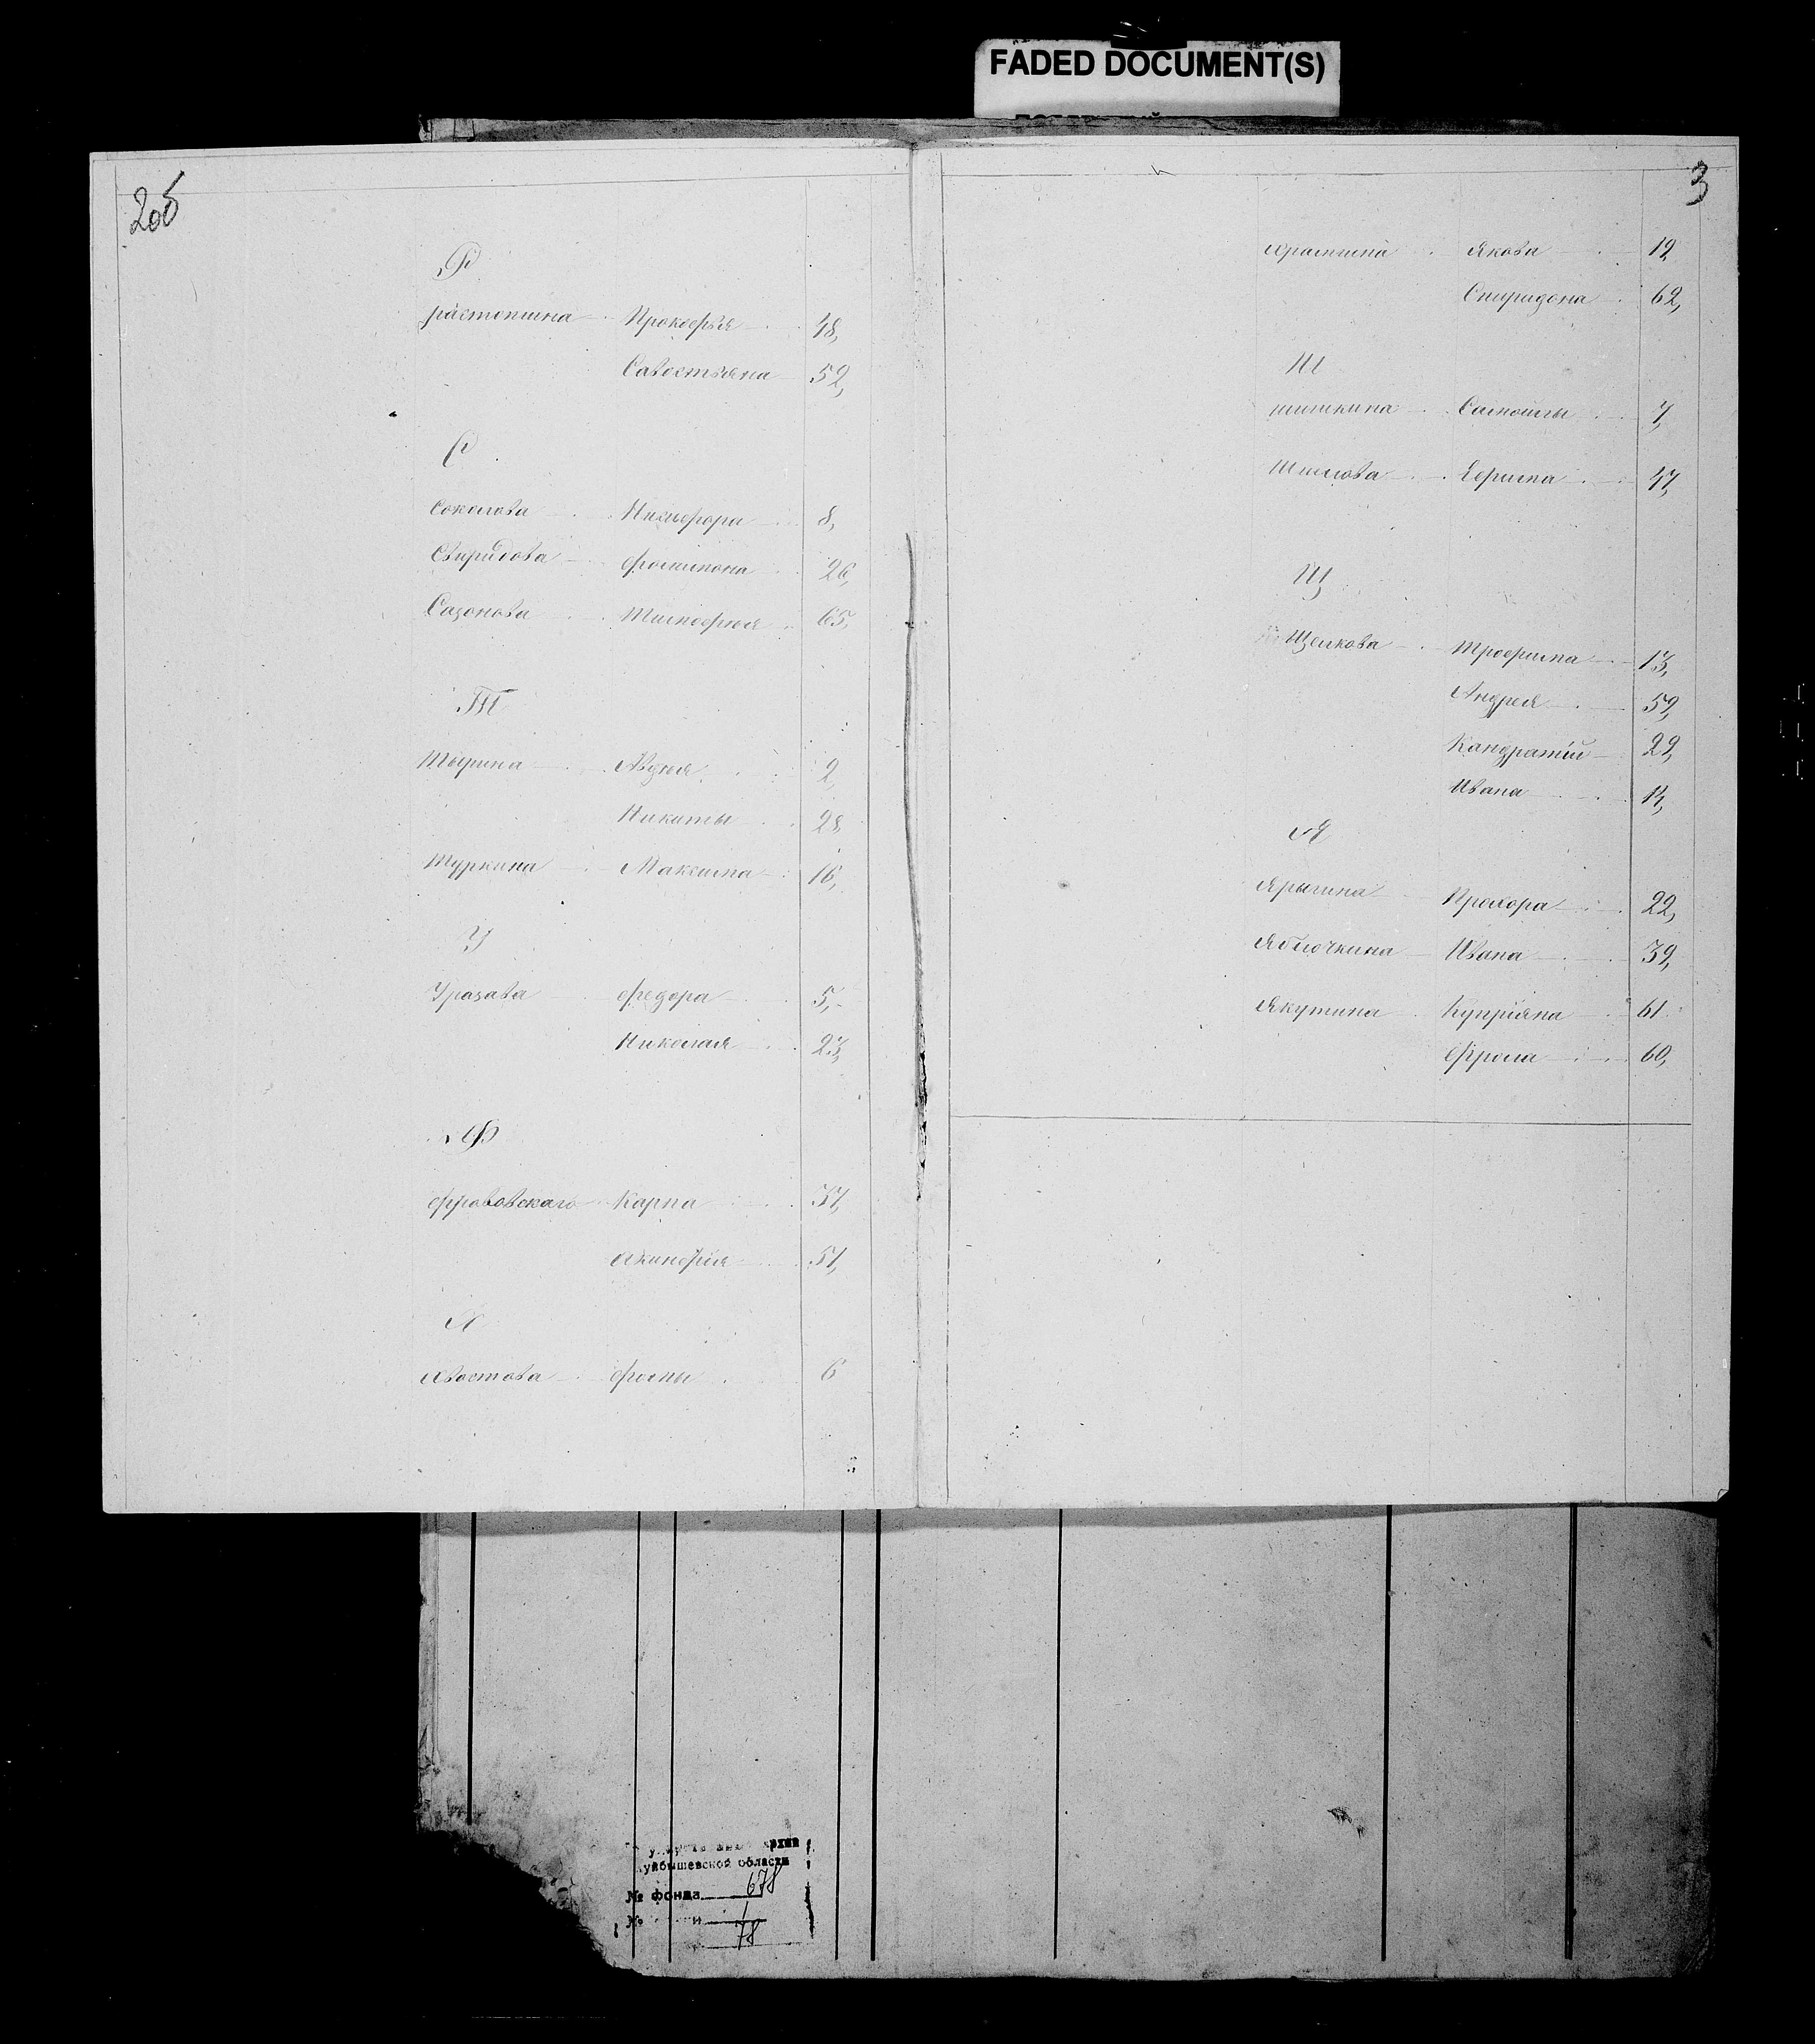 FADED DOCUMENT(S)
2об
Р
растопшина Прокофья 48,
Савостьяна 52,
С
Соколова Никифора 8,
Свиридова филимона 26,
Сазонова Тимофея 65,
Т
Тырина Авдея 2,
Никиты 28,
Туркина Максима 16,
У
Уразава федора 5,
Николая 23,
Ф
фроловскаго Карпа 37,
Акинфия 51,
Х
хвостова фомы 6
3
храмшина Якова 12,
Спиридона 62,
Ш
шишкина Самойлы 7,
Шилова Ефима 47,
Щ
Щелкова Трофима 13,
Андрея 59,
Кандратiй 29,
Ивана 14,
Я
Ярыгина Прохора 22,
Яблочкина Ивана 39,
Якутина Купрiяна 61
Фрола 60,
архив
Куйбышевской области
№ фонда 678
№ 1
78